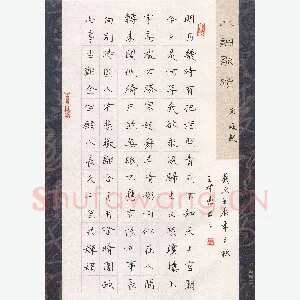 水調歌頭
明月幾時有把酒問青天不知天上宮闕
今夕是何年我欲乘風歸去又恐瓊樓玉
宇高處不勝寒起舞弄清影何似在人間
轉朱閣低綺戶照無眠不應有恨何事長
向別時圓人有悲歡離合月有陰晴圓缺
此事古難全但願人長久千里共嬋娟
Shufawang.CN